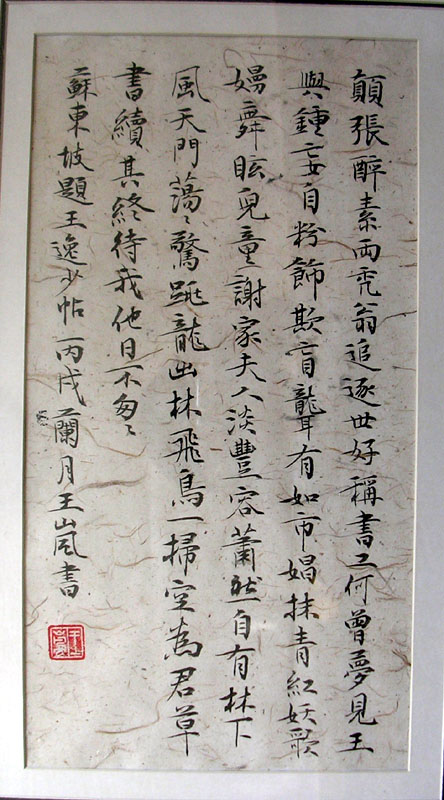 顛張醉素兩禿翁追逐世好稱書工何曾夢見王
與鍾妄自粉飾欺盲聾有如市娼抹青紅妖歌
嫚舞眩兒童謝家夫人淡豐容蕭然自有林下
風天門蕩〻驚跳龍出林飛鳥一掃空為君草
書續其終待我他日不匆〻
蘇東坡題王逸少帖丙戌蘭月王嵐書